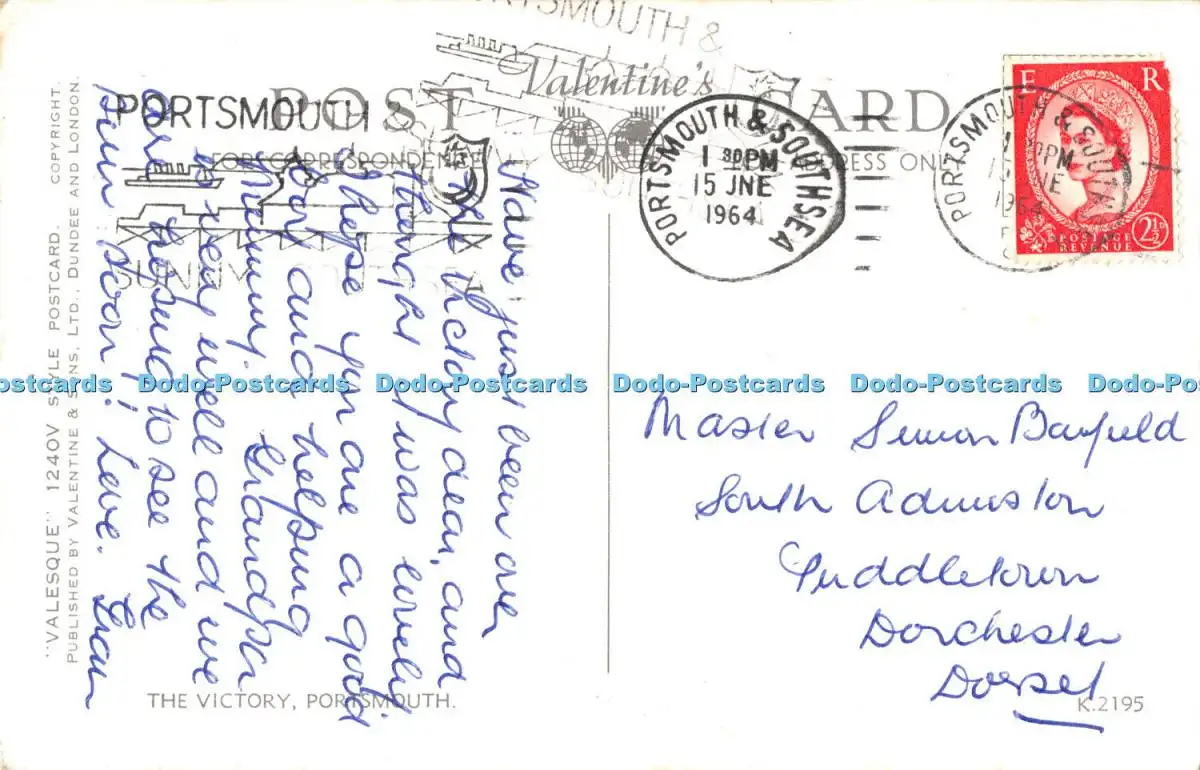 PORTSMOUTH &
POST CARD
Valentine's
FOR CORRESPONDENCE
ADDRESS ONLY
PORTSMOUTH &
SUNNY
PORTSMOUTH & SOUTHSEA
1 30PM
15 JNE
1964
PORTSMOUTH & SOUTHSEA
30PM
1964
E R
POSTAGE
REVENUE
2½D
Have just been over
the Victory dear, and
thought it was lovely
I hope you are a good
boy and helping
Mummy. Grandpa
is very well and we
are hoping to see the
twin soon! Love. Gran
Master Simon Barfield
South Admiston
Puddletown
Dorchester
Dorset
"VALESQUE" 1240V STYLE POSTCARD. COPYRIGHT.
PUBLISHED BY VALENTINE & SONS, LTD., DUNDEE AND LONDON.
THE VICTORY, PORTSMOUTH.
K.2195
Dodo-Postcards Dodo-Postcards Dodo-Postcards Dodo-Postcards Dodo-Postcards Dodo-Postcards